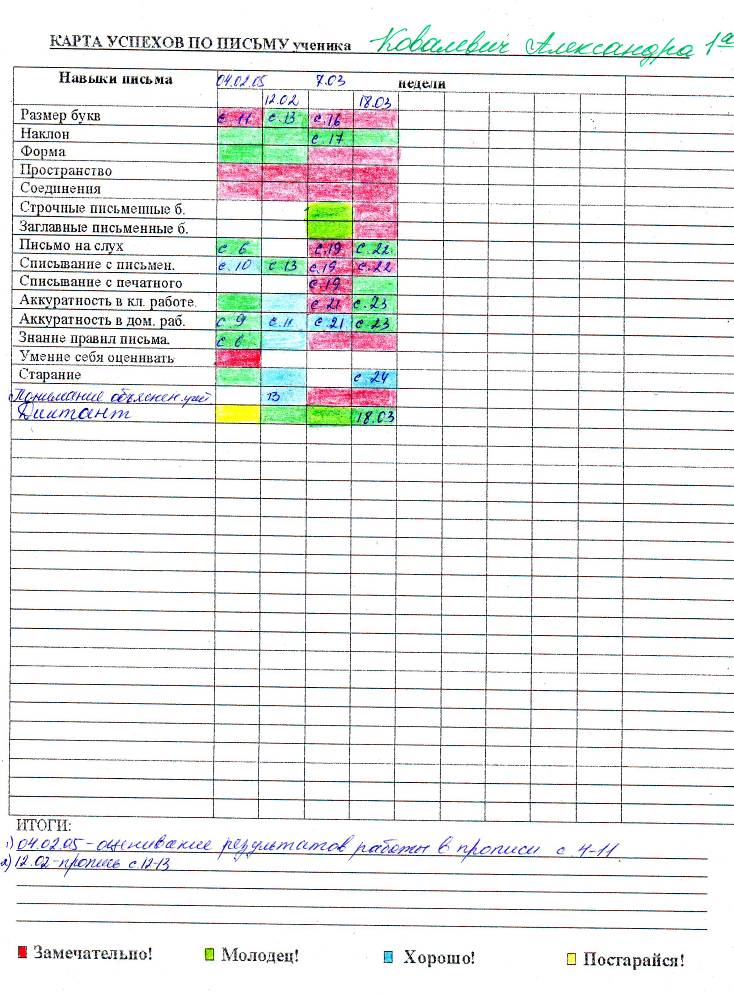 КАРТА УСПЕХОВ ПО ПИСЬМУ ученика Ковалевич Александра 1а
Навыки письма 04.02.05 7.03 недели
12.02 18.03
Размер букв с. 11 с. 13 с. 16
Наклон с. 17
Форма
Пространство
Соединения
Строчные письменные б.
Заглавные письменные б.
Письмо на слух с. 6 с. 19 с. 22
Списывание с письмен. с. 10 с. 13 с. 19 с. 22
Списывание с печатного с. 19
Аккуратность в кл. работе. с. 21 с. 23
Аккуратность в дом. раб. с. 9 с. 11 с. 21 с. 23
Знание правил письма. с. 6
Умение себя оценивать
Старание с. 24
Понимание объяснен. 13
Диктант 18.03
ИТОГИ:
1) 04.02.05 - оценивание результатов работы в прописи с 4-11
2) 12.02 - пропись с. 12-13
Замечательно! Молодец! Хорошо! Постарайся!